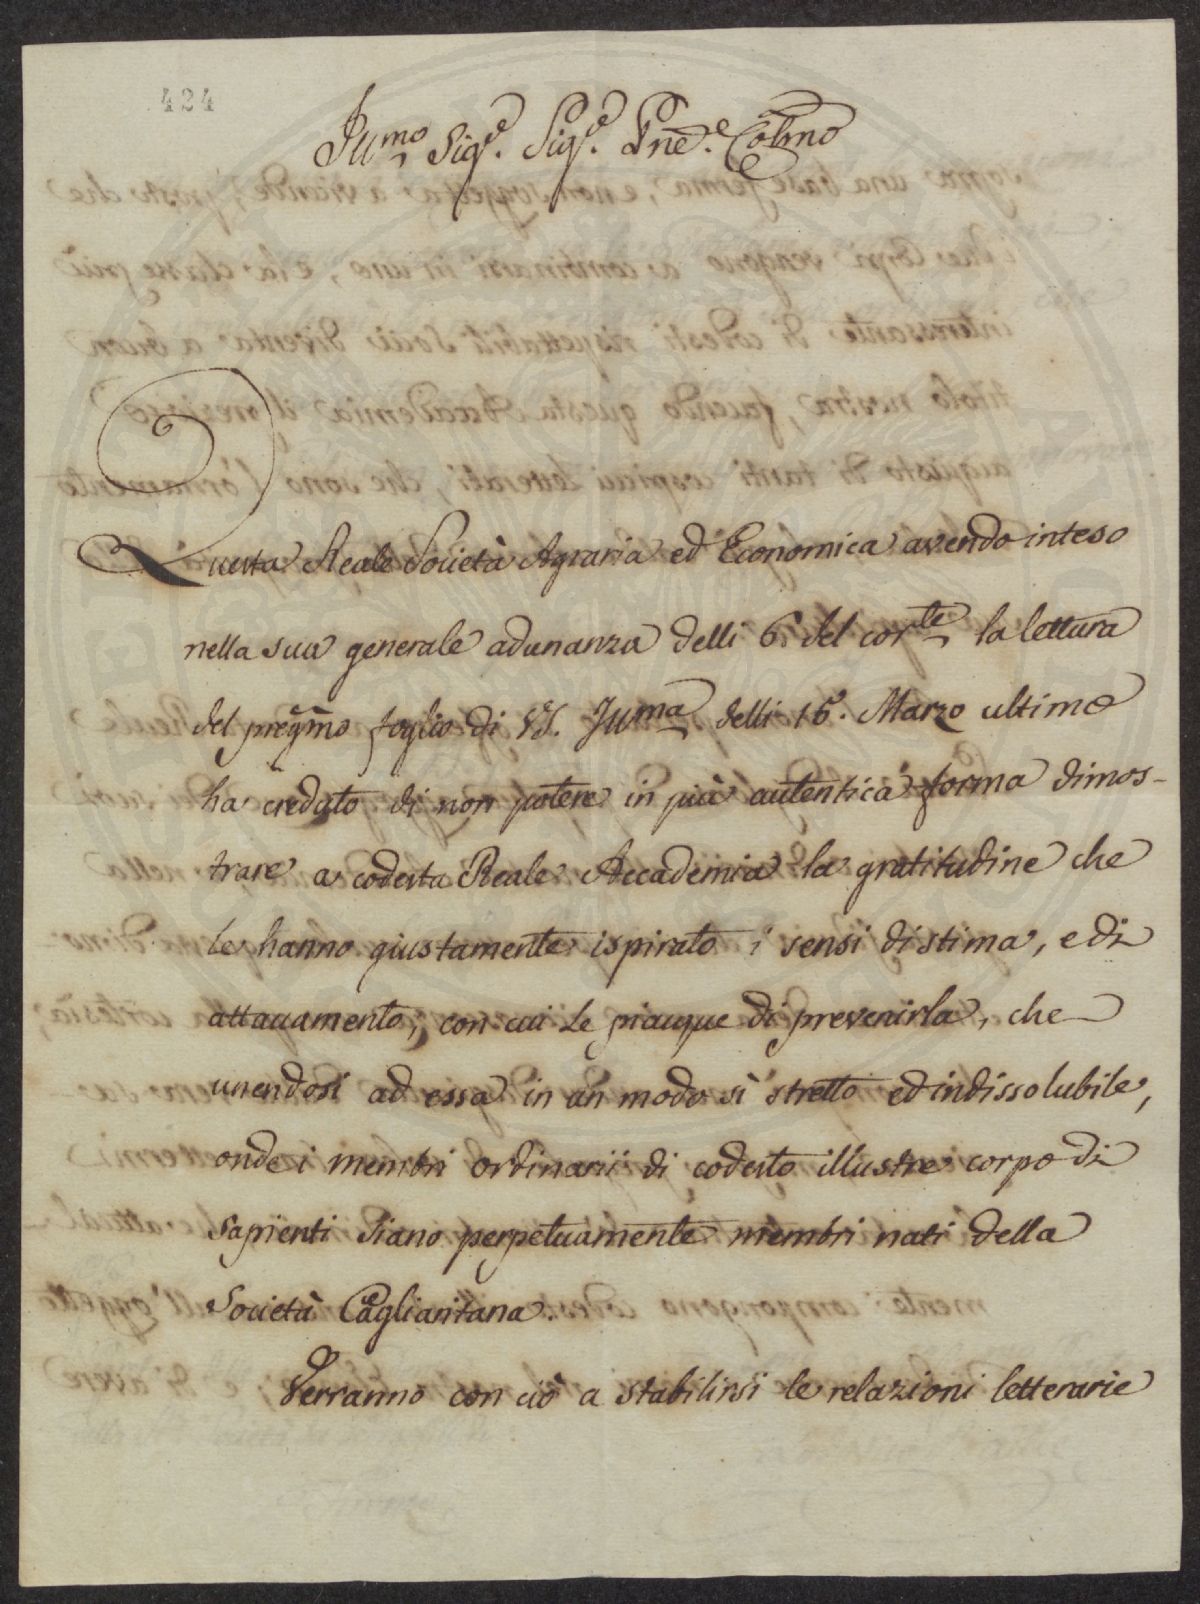 424
Illmo Sigre. Sigre. Pne. Colmo
Questa Reale Società Agraria ed Economica avendo inteso
nella sua generale adunanza delli 6. del corte la lettura
del pregmo foglio di VS. Illma delli 16. Marzo ultimo
ha creduto di non potere in più autentica forma dimos-
trare a codesta Reale Accademia la gratitudine che
le hanno giustamente ispirato i sensi di stima, e di
attaccamento, con cui Le piacque di prevenirla, che
unendosi ad essa in un modo sì stretto ed indissolubile,
onde i membri ordinarii di codesto illustre corpo di
Sapienti siano perpetuamente membri nati della
Società Cagliaritana.
Verranno con ciò a stabilirsi le relazioni letterarie